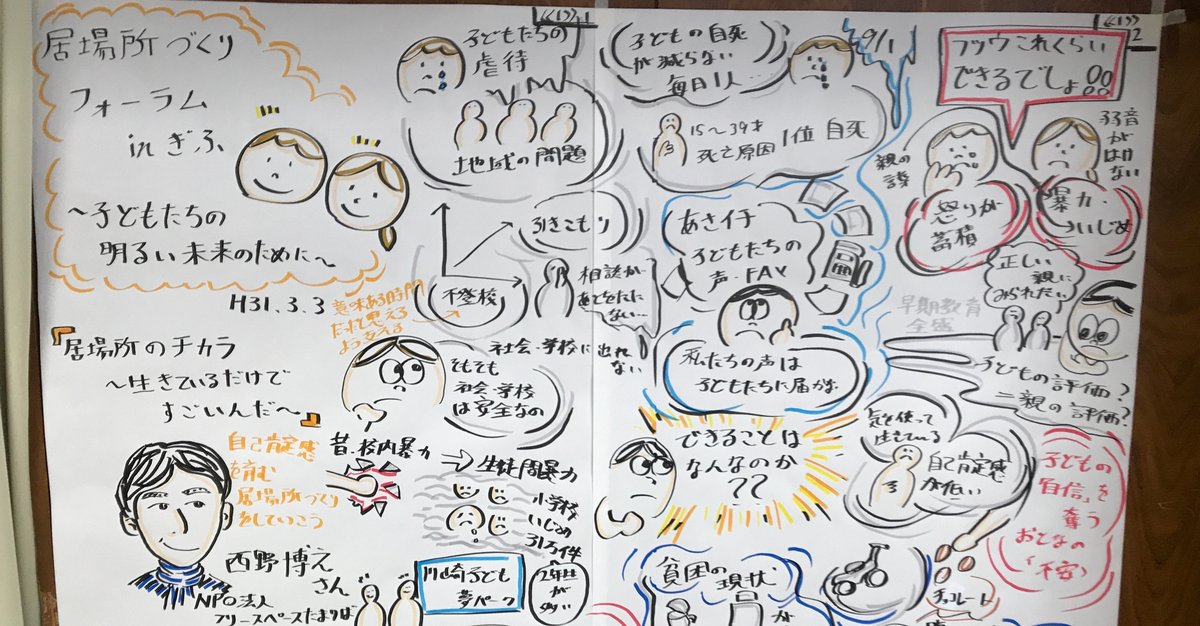 居場所づくり
フォーラム
in ぎふ
～子どもたちの
明るい未来のために～
H31.3.3
『居場所のチカラ
～生きているだけで
すごいんだ～』
自己肯定感
を育む
居場所づくり
をしていこう
西野博之
さん
NPO法人
フリースペースたまりば
子どもたちの
虐待
地域の問題
引きこもり
不登校
意味ある時間
だったと思える
よう支える
相談が
あとをたた
ない…
社会・学校に出れ
ない
そもそも
社会・学校
は安全なの
昔：校内暴力
→生徒間暴力
小学校
いじめ
31万件
2年生
が多い
川崎子ども
夢パーク
子どもの自死
が減らない
毎日1人…
15～39才
死亡原因1位 自死
9/1
あさイチ
子どもたちの
声・FAX
私たちの声は
子どもたちに届かず
できることは
なんなのか
??
貧困の現状
が
フツウこれくらい
できるでしょ!!
親の
怒りが
蓄積
暴力・
→いじめ
弱音
が
はけ
ない
正しい
親に
みられたい
早期教育
全盛
子どもの評価?
=親の評価?
気を使って
生きている
自己肯定感
が低い
子どもの
「自信」を
奪う
おとなの
「不安」
チョコレート